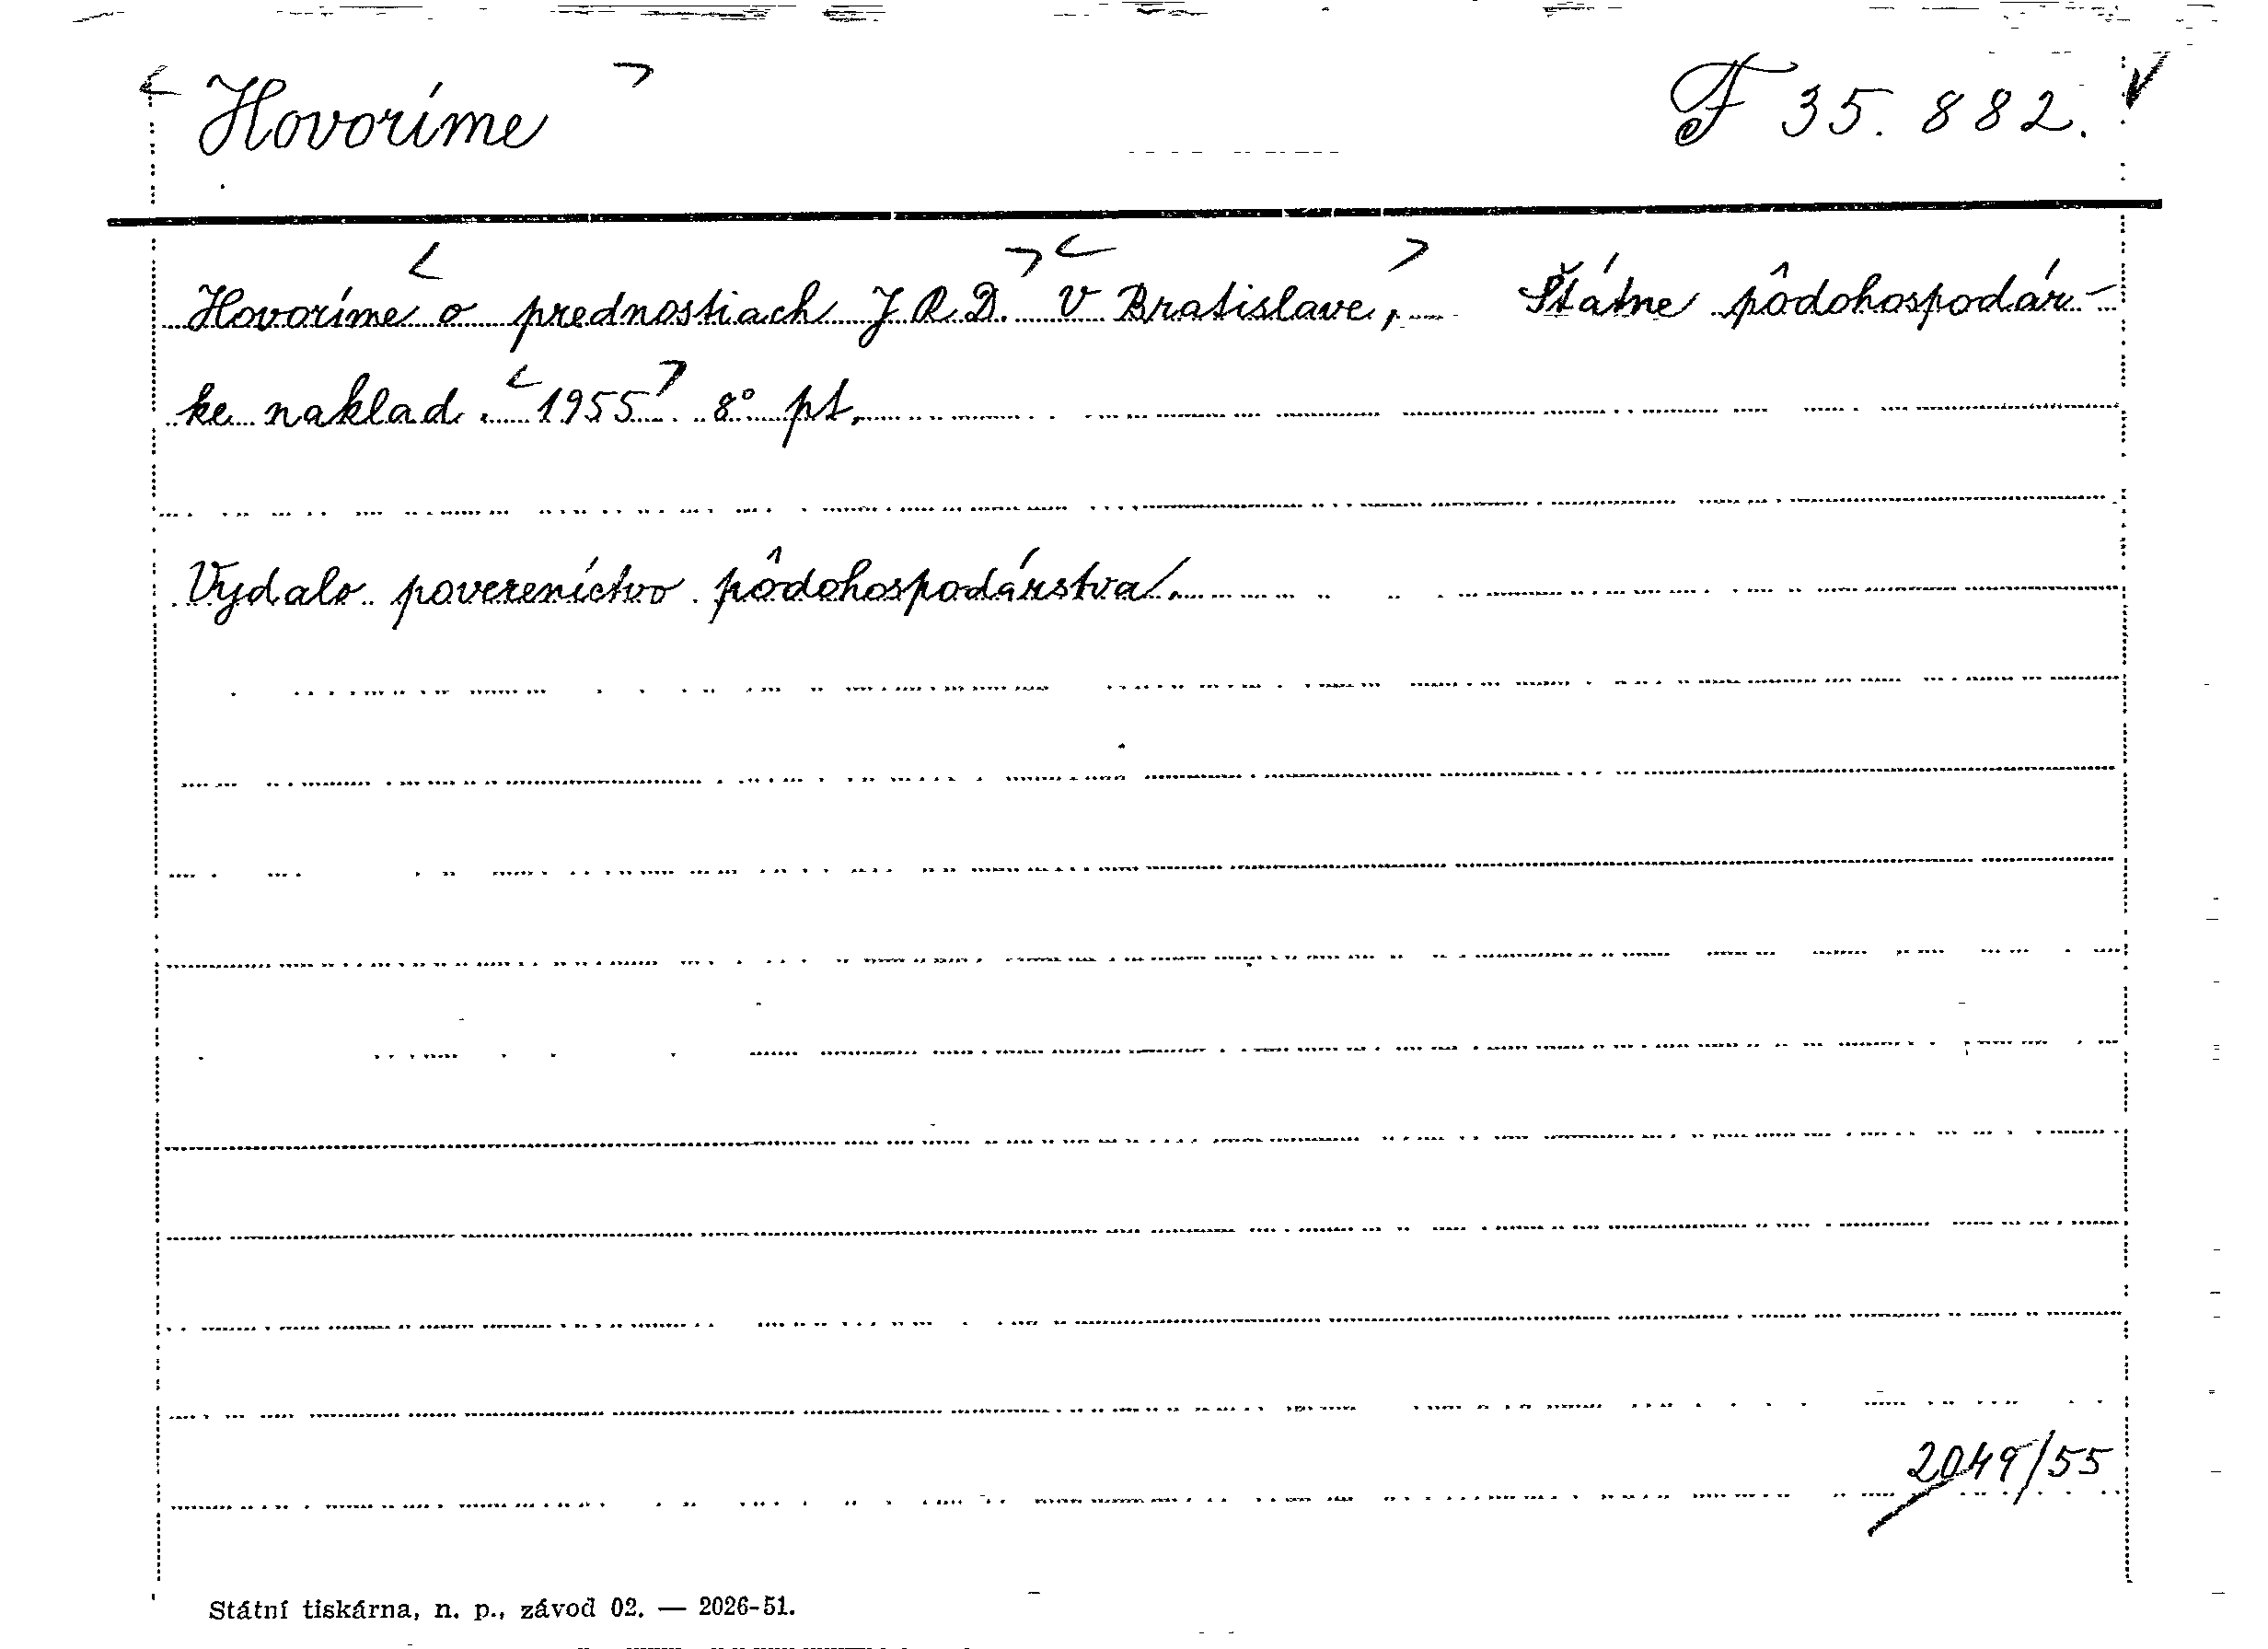 Hovoríme F 35.882.
Hovoríme o prednostiach JRD. V Bratislave, Štátne pôdohospodár-
ke naklad. 1955. 8° pt.
Vydalo povereníctvo pôdohospodárstva.
2049/55
Státní tiskárna, n. p., závod 02. — 2026-51.